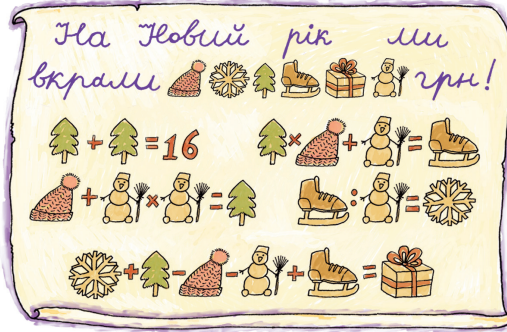 На Новий рік ми
вкрали грн!
+ = 16
× + =
+ × =
: =
+ - - + =